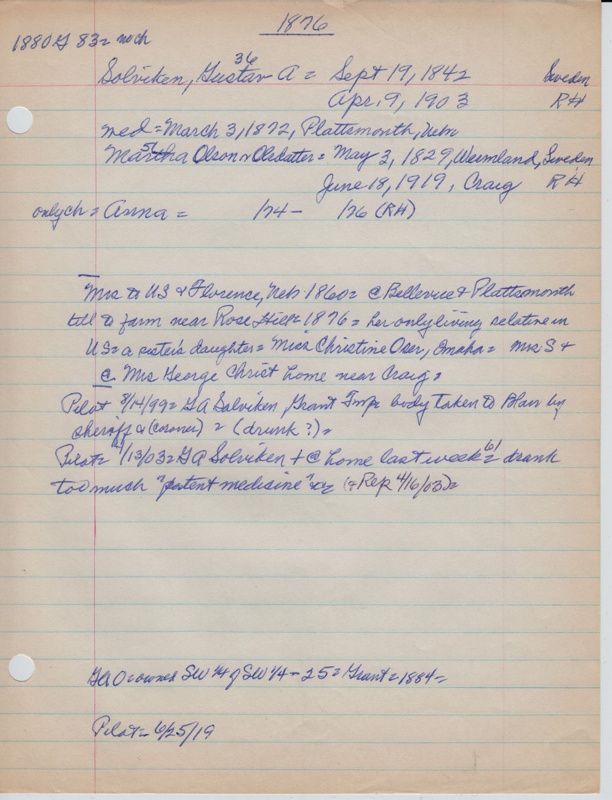 1876
1880 G 83 = no ch
36
Solviken, Gustav A = Sept 19, 1842 Sweden
Apr. 9, 1903 RH
med = March 3, 1872, Plattsmonth, Nebr
51
Martha Olson v Olsdatter = May 3, 1829, Wermland, Sweden
June 18, 1919, Craig RH
only ch = Anna = /74 - /76 (RH)
Mrs to US & Florence, Neb 1860 = @ Bellevue & Plattsmonth
till to farm near Rose Hill = 1876 = her only living relative in
US = a sister's daughter = Miss Christine Oser, Omaha = Mrs S +
@ Mrs George Christ home near Craig =
Pilot 8/14/99 = G A Solviken, Grant Twp body taken to Blair by
sheriff & (coroner) = (drunk?) =
Pilot = 4/13/03 = G A Solviken + @ home last week = 61 = drank
too much "patent medicine" (& Rep 4/16/03) =
G A O owned SW 1/4 of SW 1/4 - 25 = Grant = 1884 =
Pilot = 6/25/19